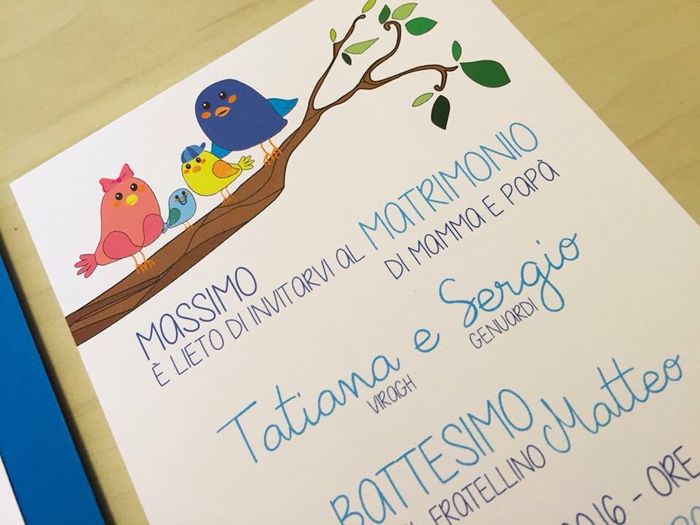 MASSIMO
È LIETO DI INVITARVI AL MATRIMONIO
DI MAMMA E PAPÀ
Tatiana e Sergio
VIRAGH GENUARDI
BATTESIMO
FRATELLINO Matteo
2016 - ORE